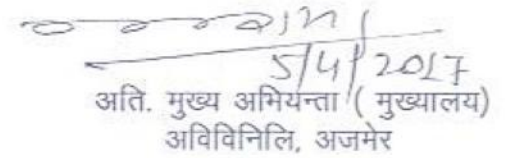 5/4/2017
अति. मुख्य अभियन्ता ( मुख्यालय)
अविविनिलि, अजमेर